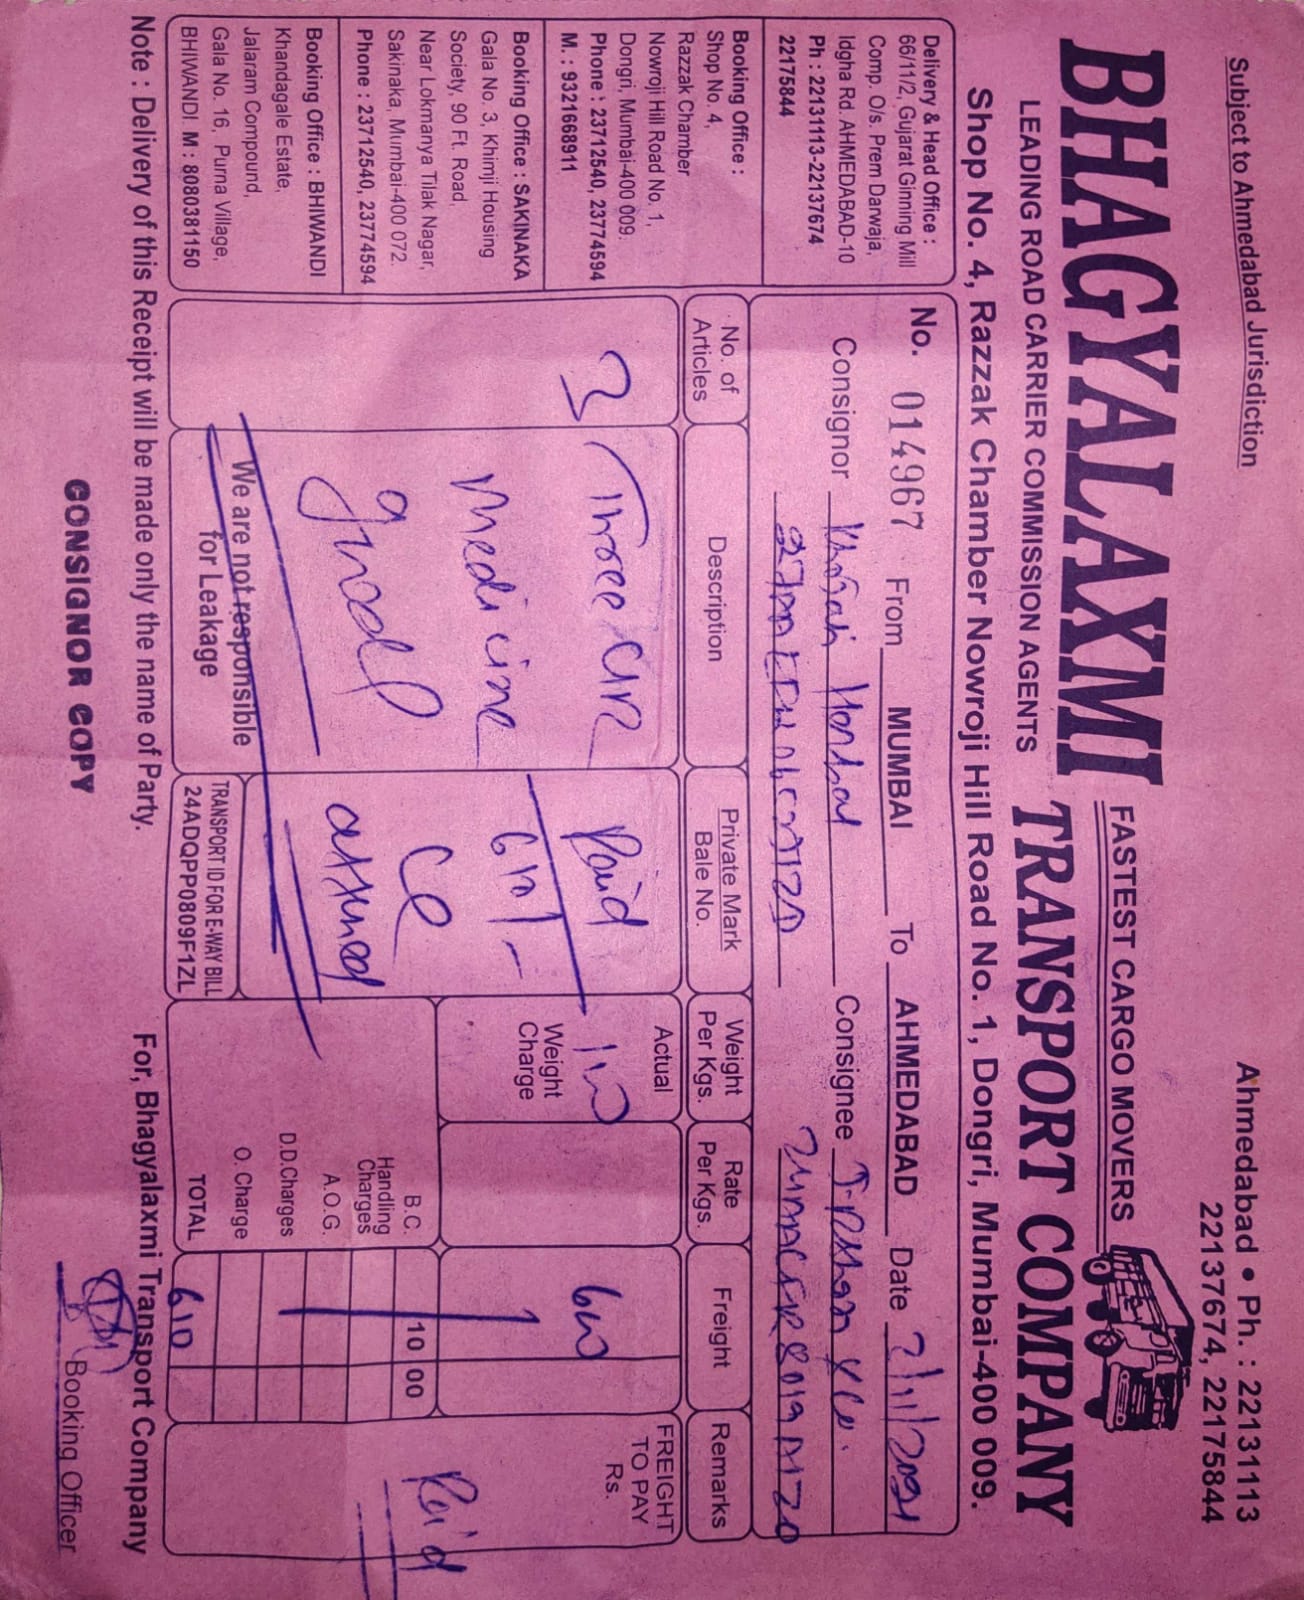 Subject to Ahmedabad Jurisdiction
Ahmedabad • Ph. : 22131113
22137674, 22175844
BHAGYALAXMI
FASTEST CARGO MOVERS
TRANSPORT COMPANY
LEADING ROAD CARRIER COMMISSION AGENTS
Shop No. 4, Razzak Chamber Nowroji Hill Road No. 1, Dongri, Mumbai-400 009.
Delivery & Head Office :
66/11/2, Gujarat Ginning Mill
Comp. O/s. Prem Darwaja,
Idgha Rd. AHMEDABAD-10
Ph : 22131113-22137674
22175844
Booking Office :
Shop No. 4,
Razzak Chamber
Nowroji Hill Road No. 1,
Dongri, Mumbai-400 009.
Phone : 23712540, 23774594
M. : 9321668911
Booking Office : SAKINAKA
Gala No. 3, Khimji Housing
Society, 90 Ft. Road,
Near Lokmanya Tilak Nagar,
Sakinaka, Mumbai-400 072.
Phone : 23712540, 23774594
Booking Office : BHIWANDI
Khandagale Estate,
Jalaram Compound,
Gala No. 16, Purna Village,
BHIWANDI M : 8080381150
No. 014967 From MUMBAI To AHMEDABAD Date 2/11/2021
Consignor Consignee
No. of Articles
Description
Private Mark
Bale No.
Weight Per Kgs.
Rate Per Kgs.
Freight
Remarks
3
Three
medicine
good
We are not responsible
for Leakage
Paid
610/-
attached
TRANSPORT ID FOR E-WAY BILL
24ADQPP0809F1ZL
Actual
Weight
Charge
600
FREIGHT
TO PAY
Rs.
Paid
B.C. 10 00
Handling
Charges
A.O.G.
D.D.Charges
O. Charge
TOTAL 610
Note : Delivery of this Receipt will be made only the name of Party.
For, Bhagyalaxmi Transport Company
CONSIGNOR COPY
Booking Officer